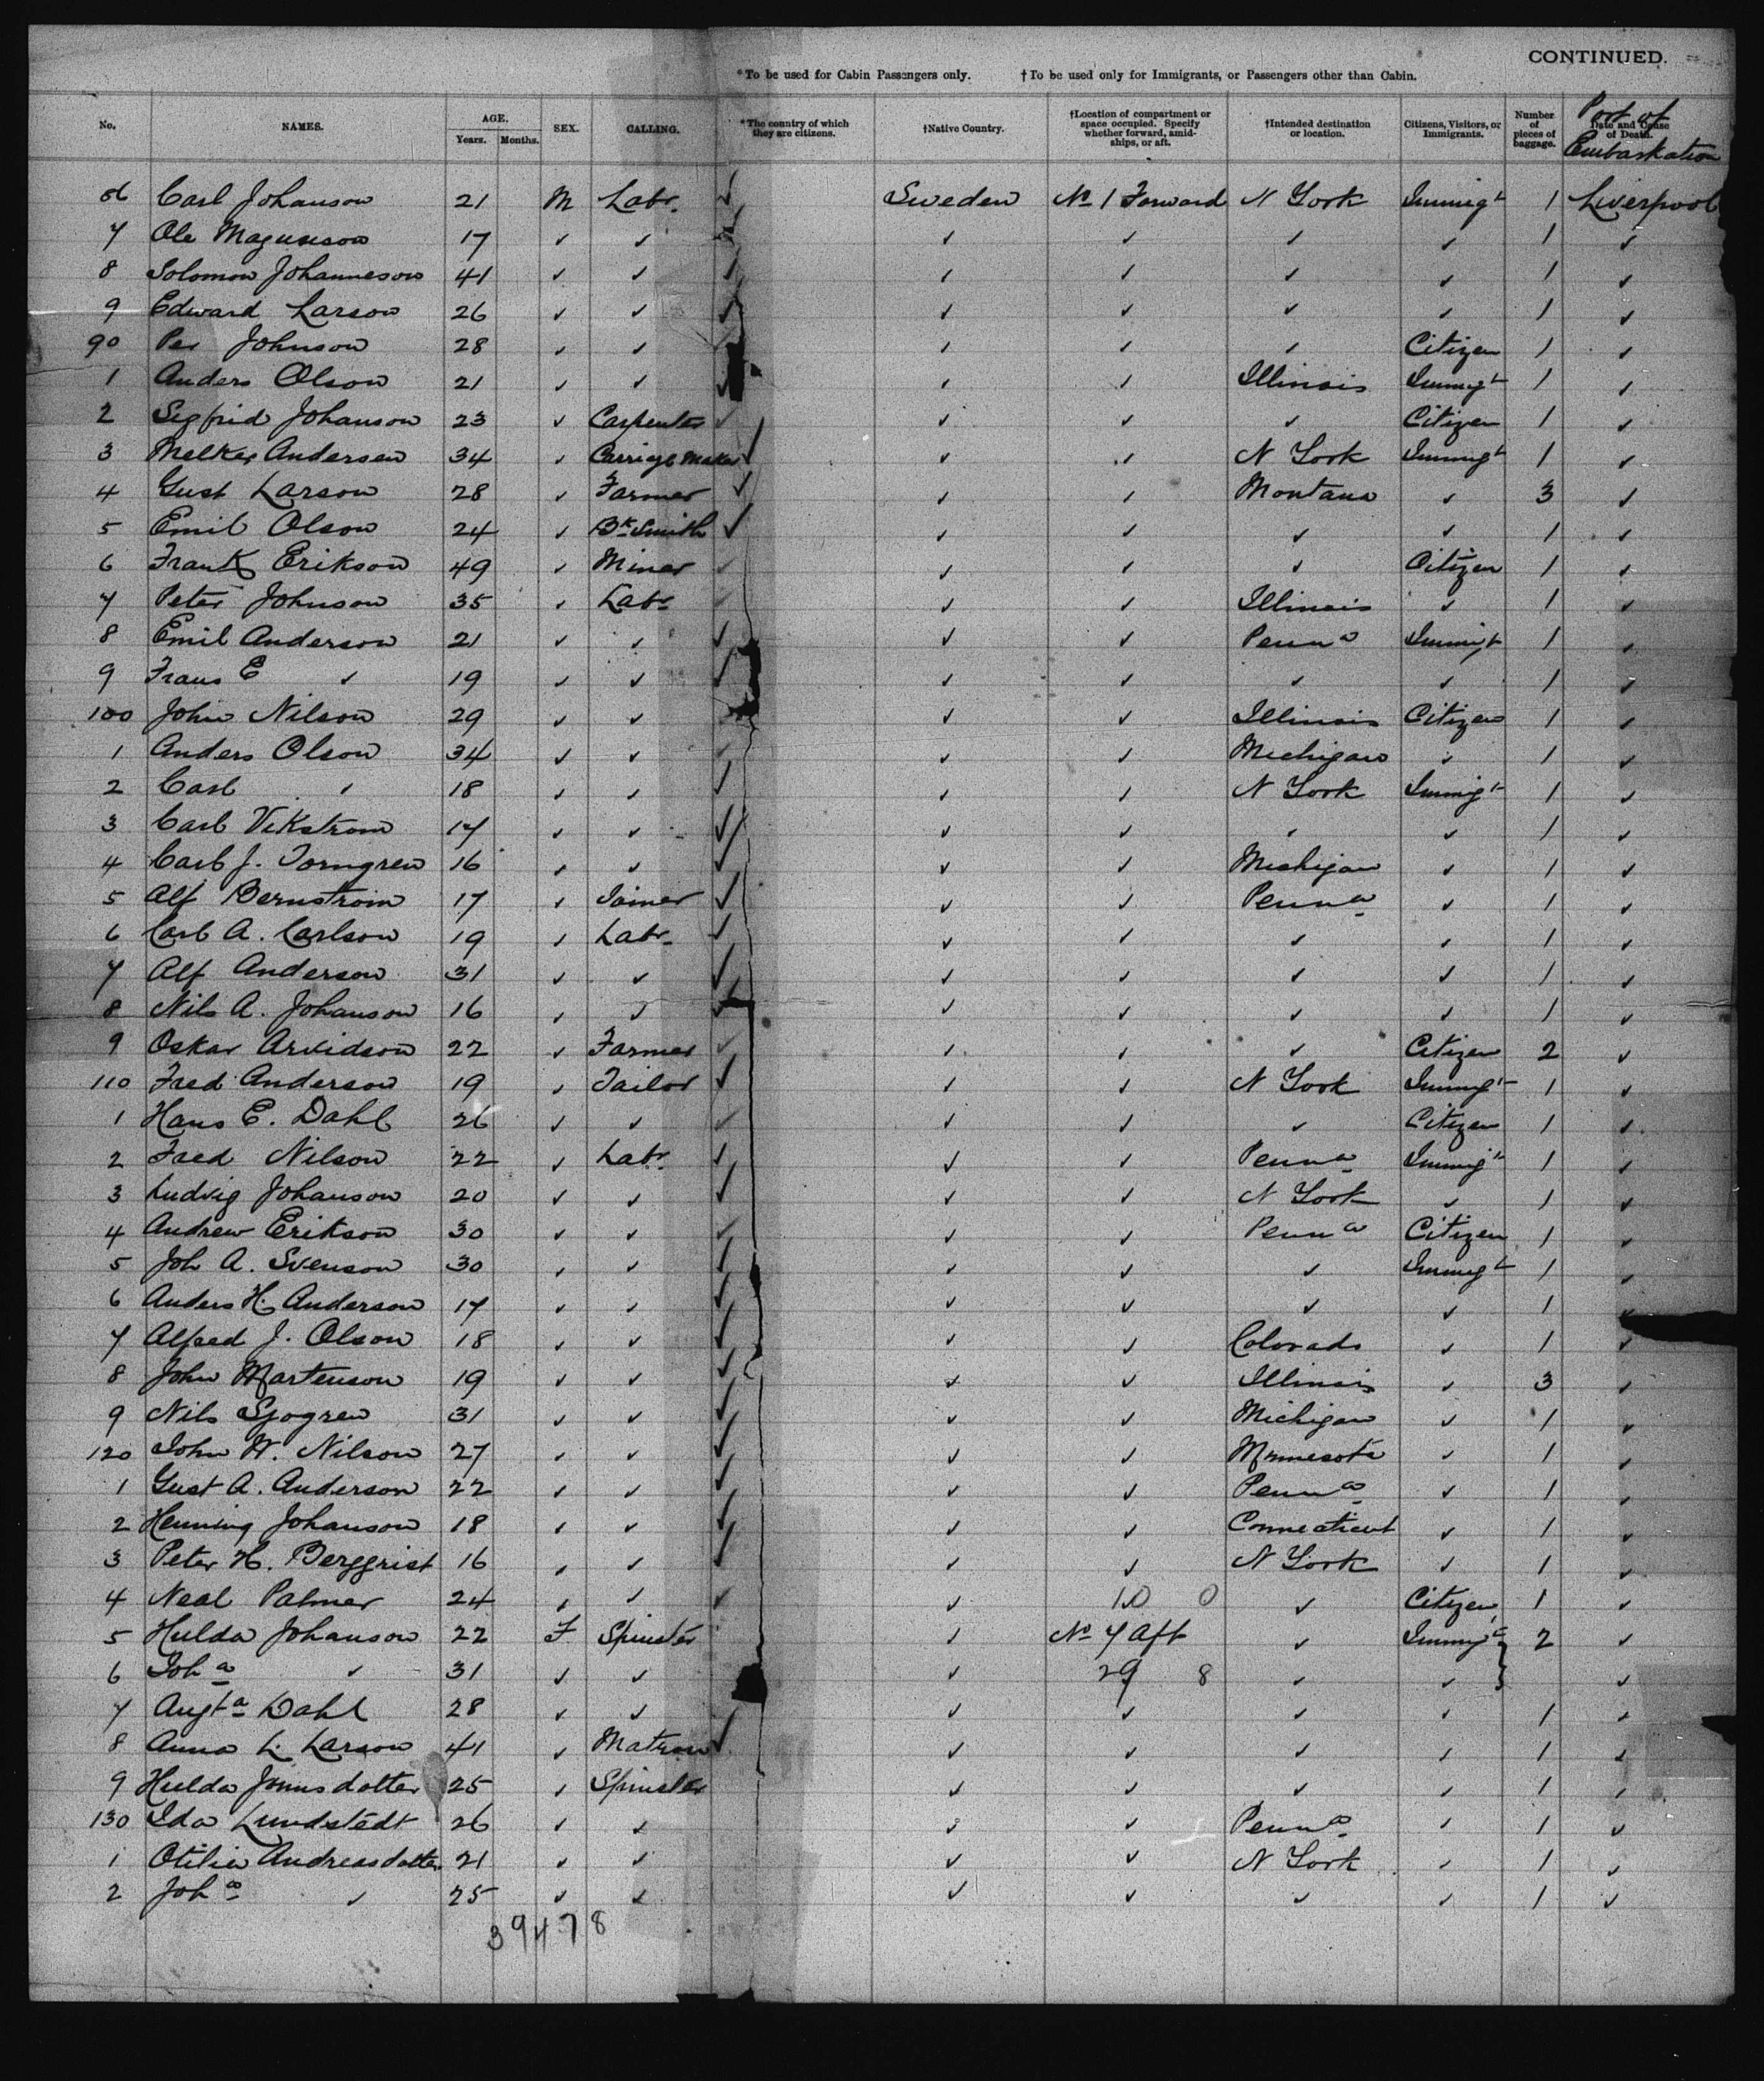 CONTINUED.
*To be used for Cabin Passengers only. †To be used only for Immigrants, or Passengers other than Cabin.
No. NAMES. AGE. Years. Months. SEX. CALLING. *The country of which they are citizens. †Native Country. †Location of compartment or space occupied. Specify whether forward, amidships, or aft. †Intended destination or location. Citizens, Visitors, or Immigrants. Number of pieces of baggage. Date and Cause of Death. Port of Embarkation
86 Carl Johanson 21 M Labr. ✓ Sweden No 1 Forward N York Immigt 1 Liverpool
7 Ole Magnuson 17 ✓ ✓ ✓ ✓ ✓ ✓ ✓ 1 ✓
8 Solomon Johanneson 41 ✓ ✓ ✓ ✓ ✓ ✓ ✓ 1 ✓
9 Edward Larson 26 ✓ ✓ ✓ ✓ ✓ ✓ ✓ 1 ✓
90 Per Johnson 28 ✓ ✓ ✓ ✓ ✓ Citizen 1 ✓
1 Anders Olson 21 ✓ ✓ ✓ ✓ ✓ Illinois Immigt 1 ✓
2 Segfrid Johanson 23 ✓ Carpenter ✓ ✓ ✓ ✓ Citizen 1 ✓
3 Melker Andersen 34 ✓ Carriage Maker ✓ ✓ ✓ N York Immigt 1 ✓
4 Gust Larson 28 ✓ Farmer ✓ ✓ ✓ Montana ✓ 3 ✓
5 Emil Olson 24 ✓ Bk Smith ✓ ✓ ✓ ✓ ✓ 1 ✓
6 Frank Erikson 49 ✓ Miner ✓ ✓ ✓ ✓ Citizen 1 ✓
7 Peter Johnson 35 ✓ Labr ✓ ✓ ✓ Illinois ✓ 1 ✓
8 Emil Anderson 21 ✓ ✓ ✓ ✓ ✓ Penna Immigt 1 ✓
9 Frans E ✓ 19 ✓ ✓ ✓ ✓ ✓ ✓ ✓ 1 ✓
100 John Nilson 29 ✓ ✓ ✓ ✓ Illinois Citizen 1 ✓
1 Anders Olson 34 ✓ ✓ ✓ ✓ ✓ Michigan ✓ 1 ✓
2 Carl ✓ 18 ✓ ✓ ✓ ✓ ✓ N York Immigt 1 ✓
3 Carl Vikstrom 17 ✓ ✓ ✓ ✓ ✓ ✓ ✓ 1 ✓
4 Carl J. Torngren 16 ✓ ✓ ✓ ✓ ✓ Michigan ✓ 1 ✓
5 Alf Bernstrom 17 ✓ Joiner ✓ ✓ ✓ Penna ✓ 1 ✓
6 Carl A. Carlson 19 ✓ Labr. ✓ ✓ ✓ ✓ ✓ 1 ✓
7 Alf Anderson 31 ✓ ✓ ✓ ✓ ✓ ✓ ✓ 1 ✓
8 Nils A. Johanson 16 ✓ ✓ ✓ ✓ ✓ ✓ ✓ 1 ✓
9 Oskar Arvidson 22 ✓ Farmer ✓ ✓ ✓ ✓ Citizen 2 ✓
110 Fred Anderson 19 ✓ Tailor ✓ ✓ ✓ N York Immigt 1 ✓
1 Hans E. Dahl 26 ✓ ✓ ✓ ✓ ✓ ✓ Citizen 1 ✓
2 Fred Nilson 22 ✓ Labr. ✓ ✓ ✓ Penna Immigt 1 ✓
3 Ludvig Johanson 20 ✓ ✓ ✓ ✓ ✓ N York ✓ 1 ✓
4 Andrew Erikson 30 ✓ ✓ ✓ ✓ ✓ Penna Citizen 1 ✓
5 Joh A. Svenson 30 ✓ ✓ ✓ ✓ ✓ ✓ Immigt 1 ✓
6 Anders H. Anderson 17 ✓ ✓ ✓ ✓ ✓ ✓ ✓ 1 ✓
7 Alfred J. Olson 18 ✓ ✓ ✓ ✓ ✓ Colorado ✓ 1 ✓
8 John Martenson 19 ✓ ✓ ✓ ✓ ✓ Illinois ✓ 3 ✓
9 Nils Sjogren 31 ✓ ✓ ✓ ✓ ✓ Michigan ✓ 1 ✓
120 John W. Nilson 27 ✓ ✓ ✓ ✓ ✓ Minnesota ✓ 1 ✓
1 Gust A. Anderson 22 ✓ ✓ ✓ ✓ ✓ Penna ✓ 1 ✓
2 Henning Johanson 18 ✓ ✓ ✓ ✓ ✓ Connecticut ✓ 1 ✓
3 Peter H. Bergqrist 16 ✓ ✓ ✓ ✓ ✓ N York ✓ 1 ✓
4 Neal Palmer 24 ✓ ✓ ✓ ✓ 10 0 ✓ Citizen 1 ✓
5 Hulda Johanson 22 F Spinster ✓ No 7 Aft ✓ Immigt 2 ✓
6 Joha ✓ 31 ✓ ✓ ✓ 29 8 ✓ ✓ ✓
7 Augta Dahl 28 ✓ ✓ ✓ ✓ ✓ ✓ 1 ✓
8 Anna L. Larson 41 ✓ Matron ✓ ✓ ✓ ✓ ✓ 1 ✓
9 Hulda Jonnsdotter 25 ✓ Spinster ✓ ✓ ✓ ✓ 1 ✓
130 Ida Lundstedt 26 ✓ ✓ ✓ ✓ Penna ✓ 1 ✓
1 Otilia Andreasdotter 21 ✓ ✓ ✓ ✓ N York ✓ 1 ✓
2 Joha ✓ 25 ✓ ✓ ✓ ✓ ✓ ✓ 1 ✓
39478